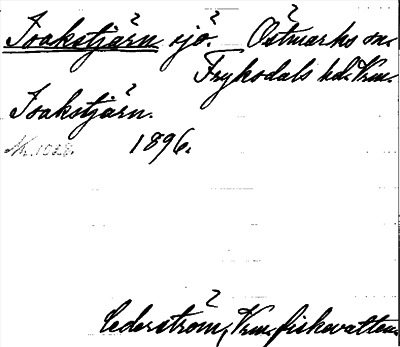 Isakstjärn sjö. Östmarks sn.
Fryksdals hd. Vrm.
Isakstjärn.
1896.
Cederström, Vrm. fiskevatten.